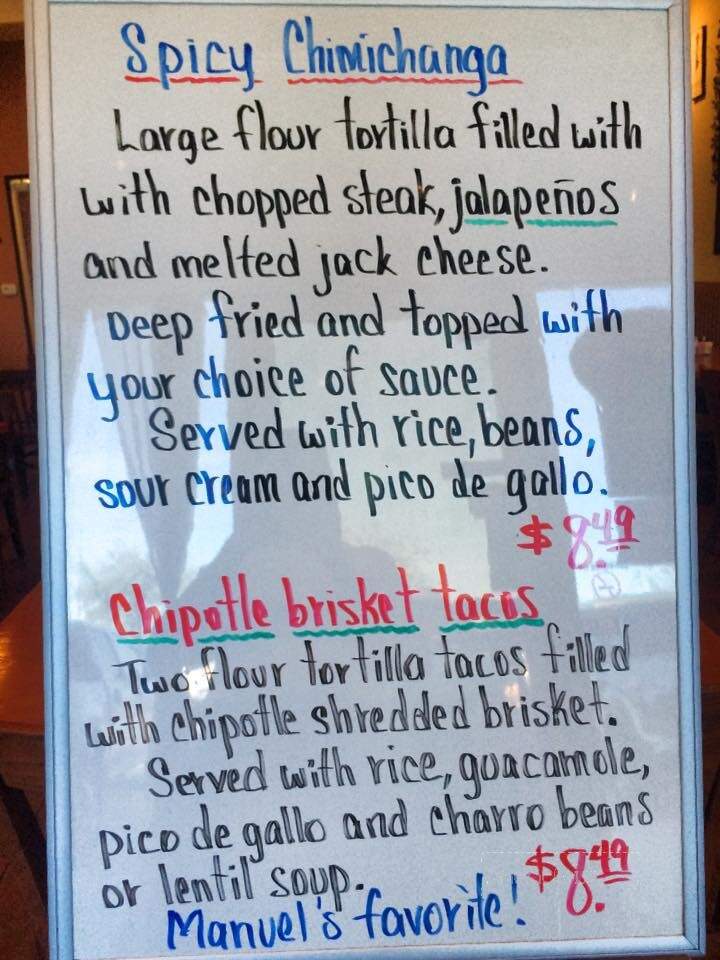 Spicy Chimichanga
Large flour tortilla filled with
with chopped steak, jalapeños
and melted jack cheese.
Deep fried and topped with
your choice of sauce.
Served with rice, beans,
sour cream and pico de gallo.
$8.49
Chipotle brisket tacos
Two flour tortilla tacos filled
with chipotle shredded brisket.
Served with rice, guacamole,
pico de gallo and charro beans
or lentil soup.
$8.49
Manuel's favorite!